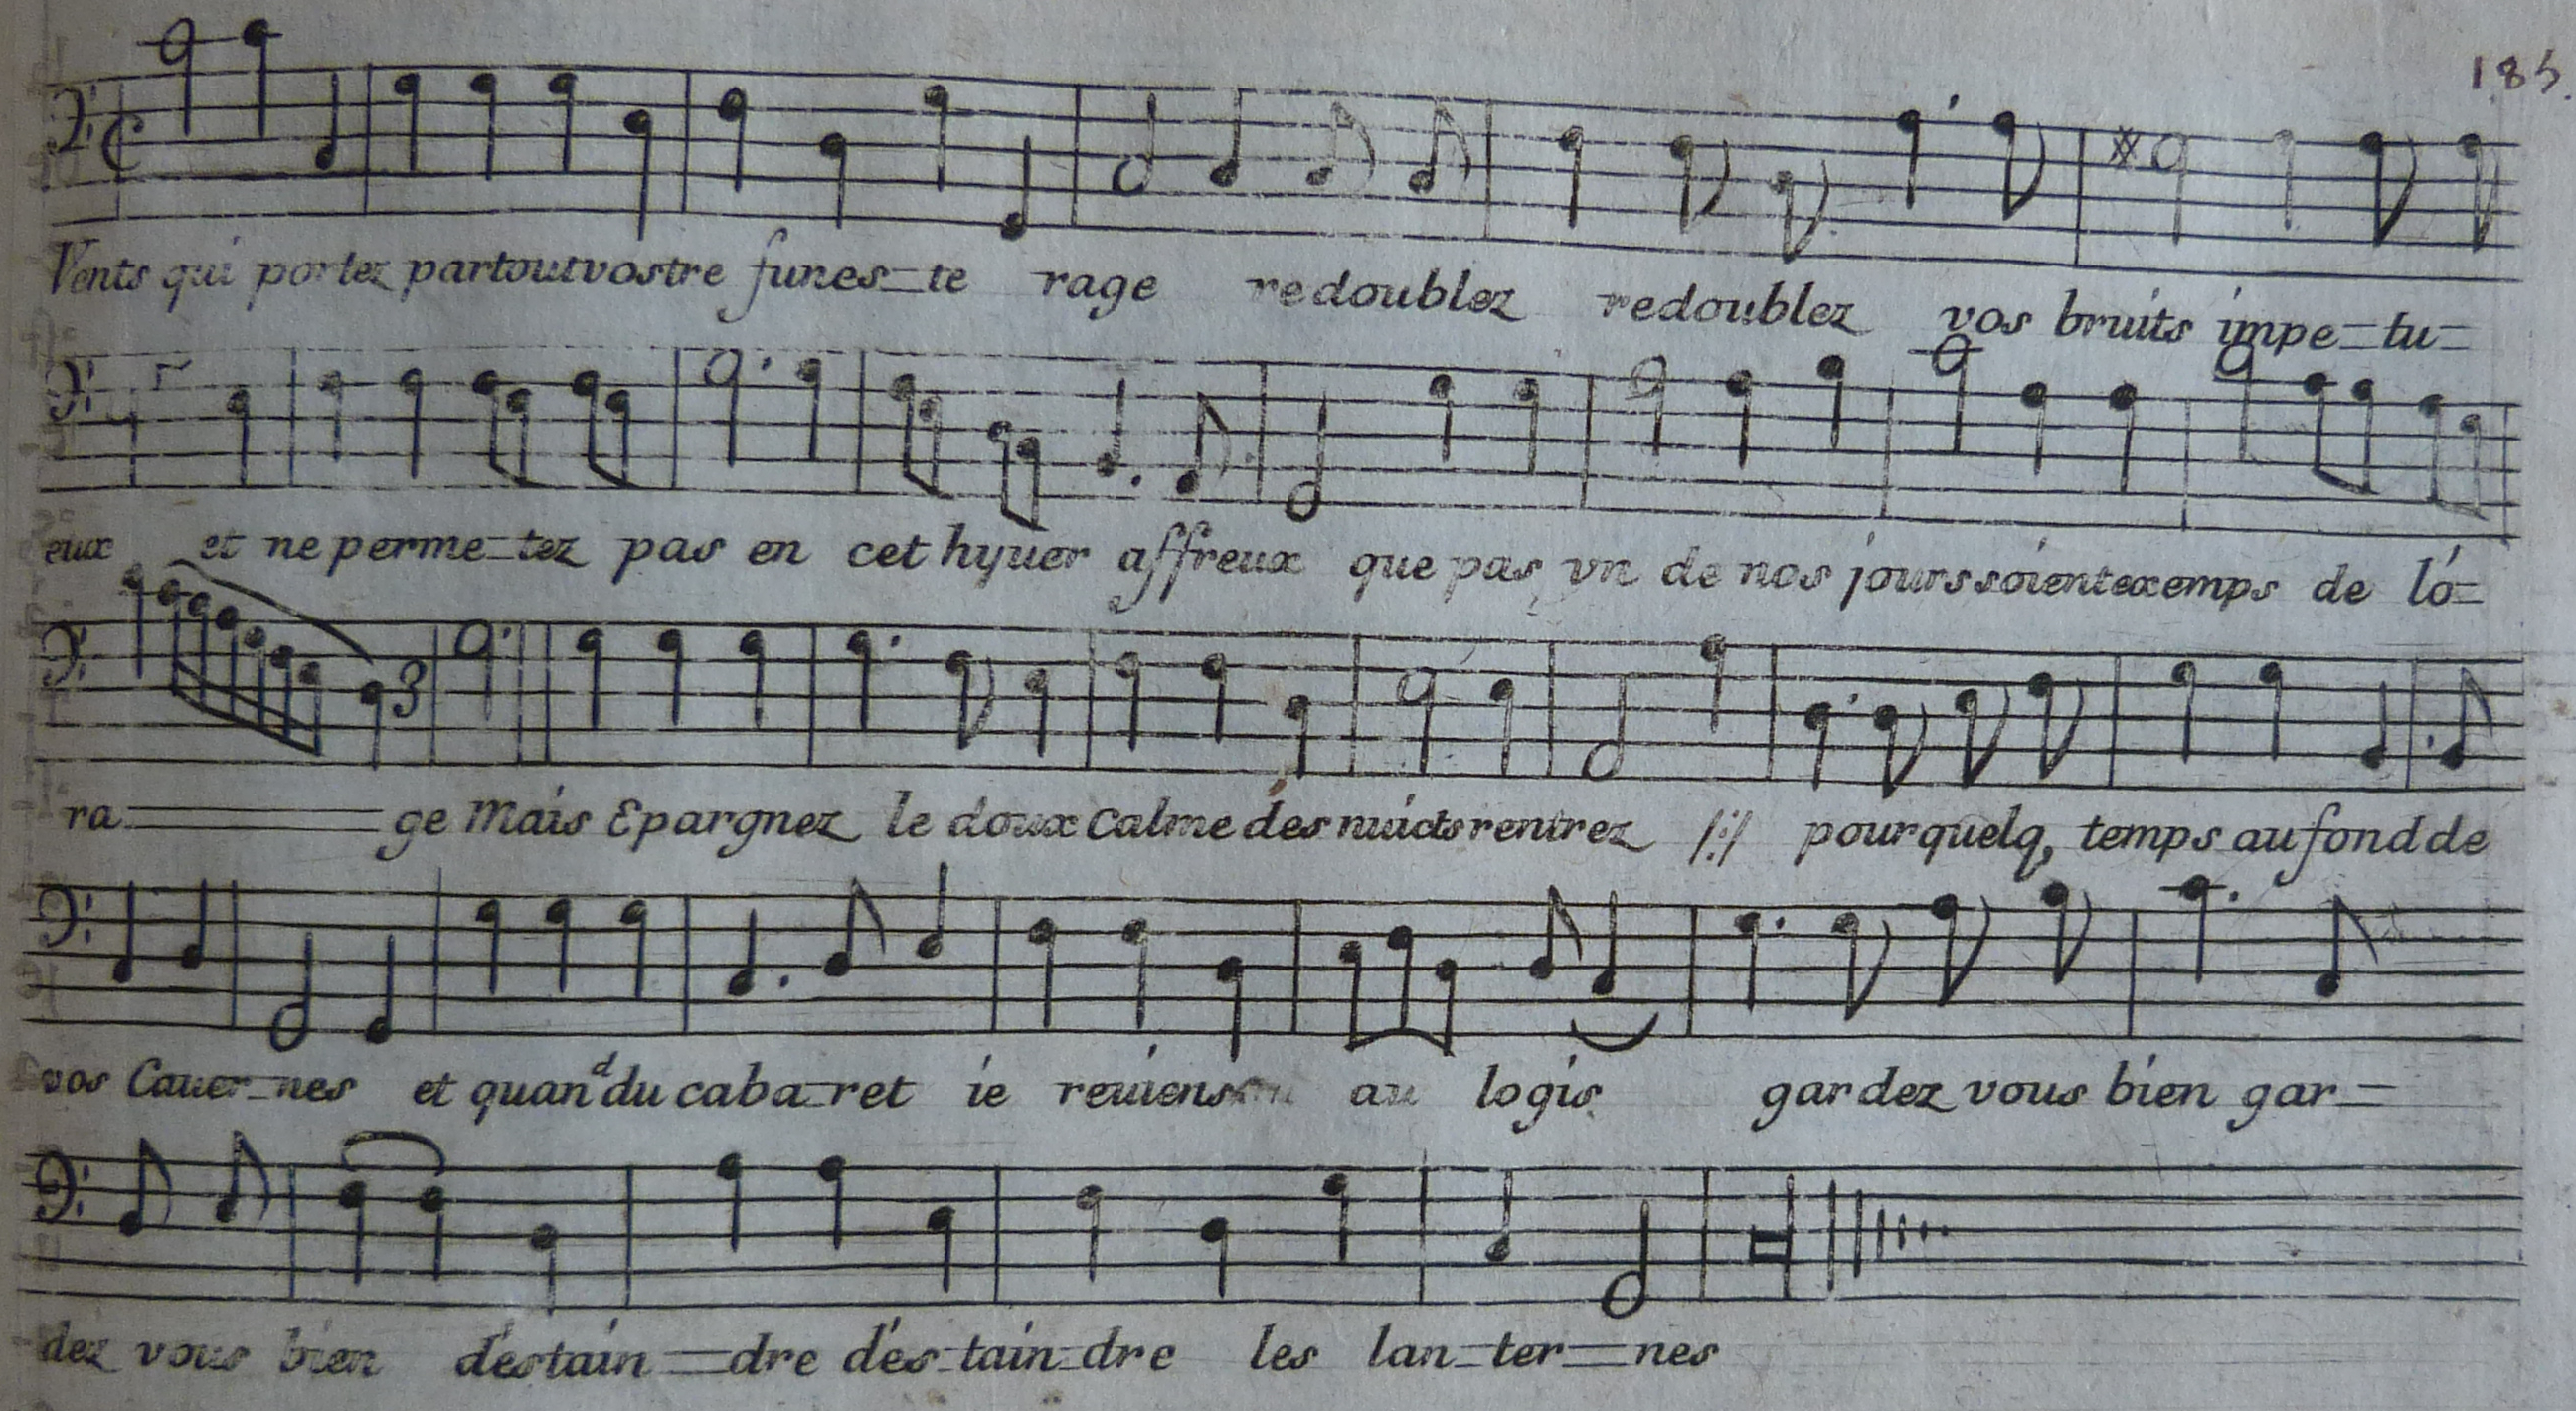 185.
Vents qui portez partout vostre funes_te rage redoublez redoublez vos bruits impe_tu_
eux et ne perme_tez pas en cet hyuer affreux que pas vn de nos jours soient exemps de lo_
ra_ge Mais Epargnez le doux Calme des nuicts rentrez /:/ pour quelq, temps au fond de
vos Cauer_nes et quand du caba_ret ie reuiens au logis gardez vous bien gar_
dez vous bien d'estain_dre d'es_tain_dre les lan_ter_nes